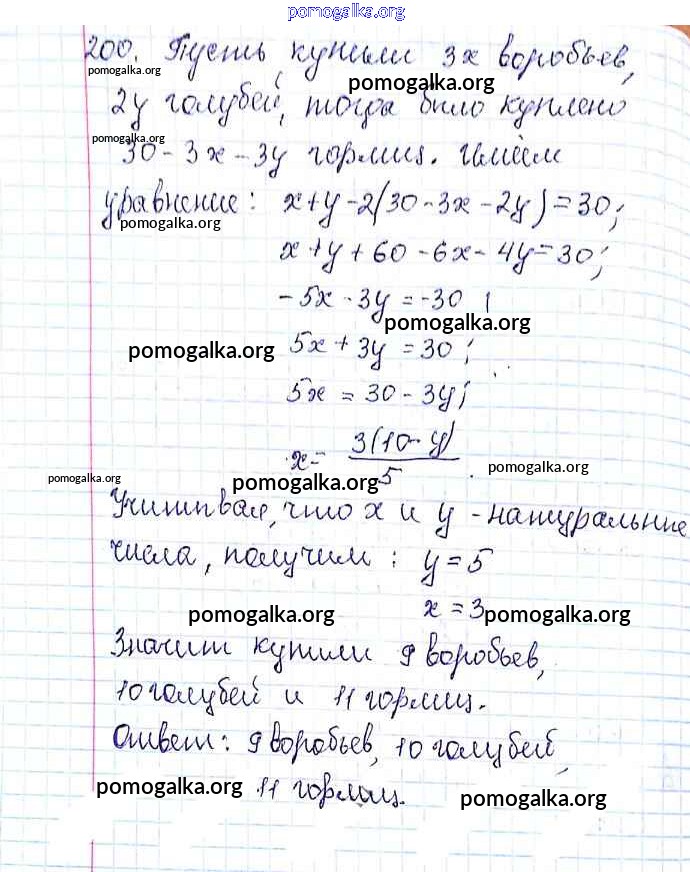 pomogalka.org
200. Пусть купили 3x воробьев,
pomogalka.org
pomogalka.org
2y голубей, тогда было куплено
pomogalka.org
30 - 3x - 3y горлиц. Имеем
уравнение: x + y - 2(30 - 3x - 2y) = 30;
pomogalka.org
x + y + 60 - 6x - 4y = 30;
-5x - 3y = -30;
pomogalka.org
pomogalka.org
5x + 3y = 30;
5x = 30 - 3y;
x = 3(10 - y) / 5.
pomogalka.org
pomogalka.org
pomogalka.org
Учитывая, что x и y - натуральные
числа, получим: y = 5
x = 3
pomogalka.org
pomogalka.org
Значит купили 9 воробьев,
10 голубей и 11 горлиц.
Ответ: 9 воробьев, 10 голубей,
pomogalka.org
11 горлиц.
pomogalka.org